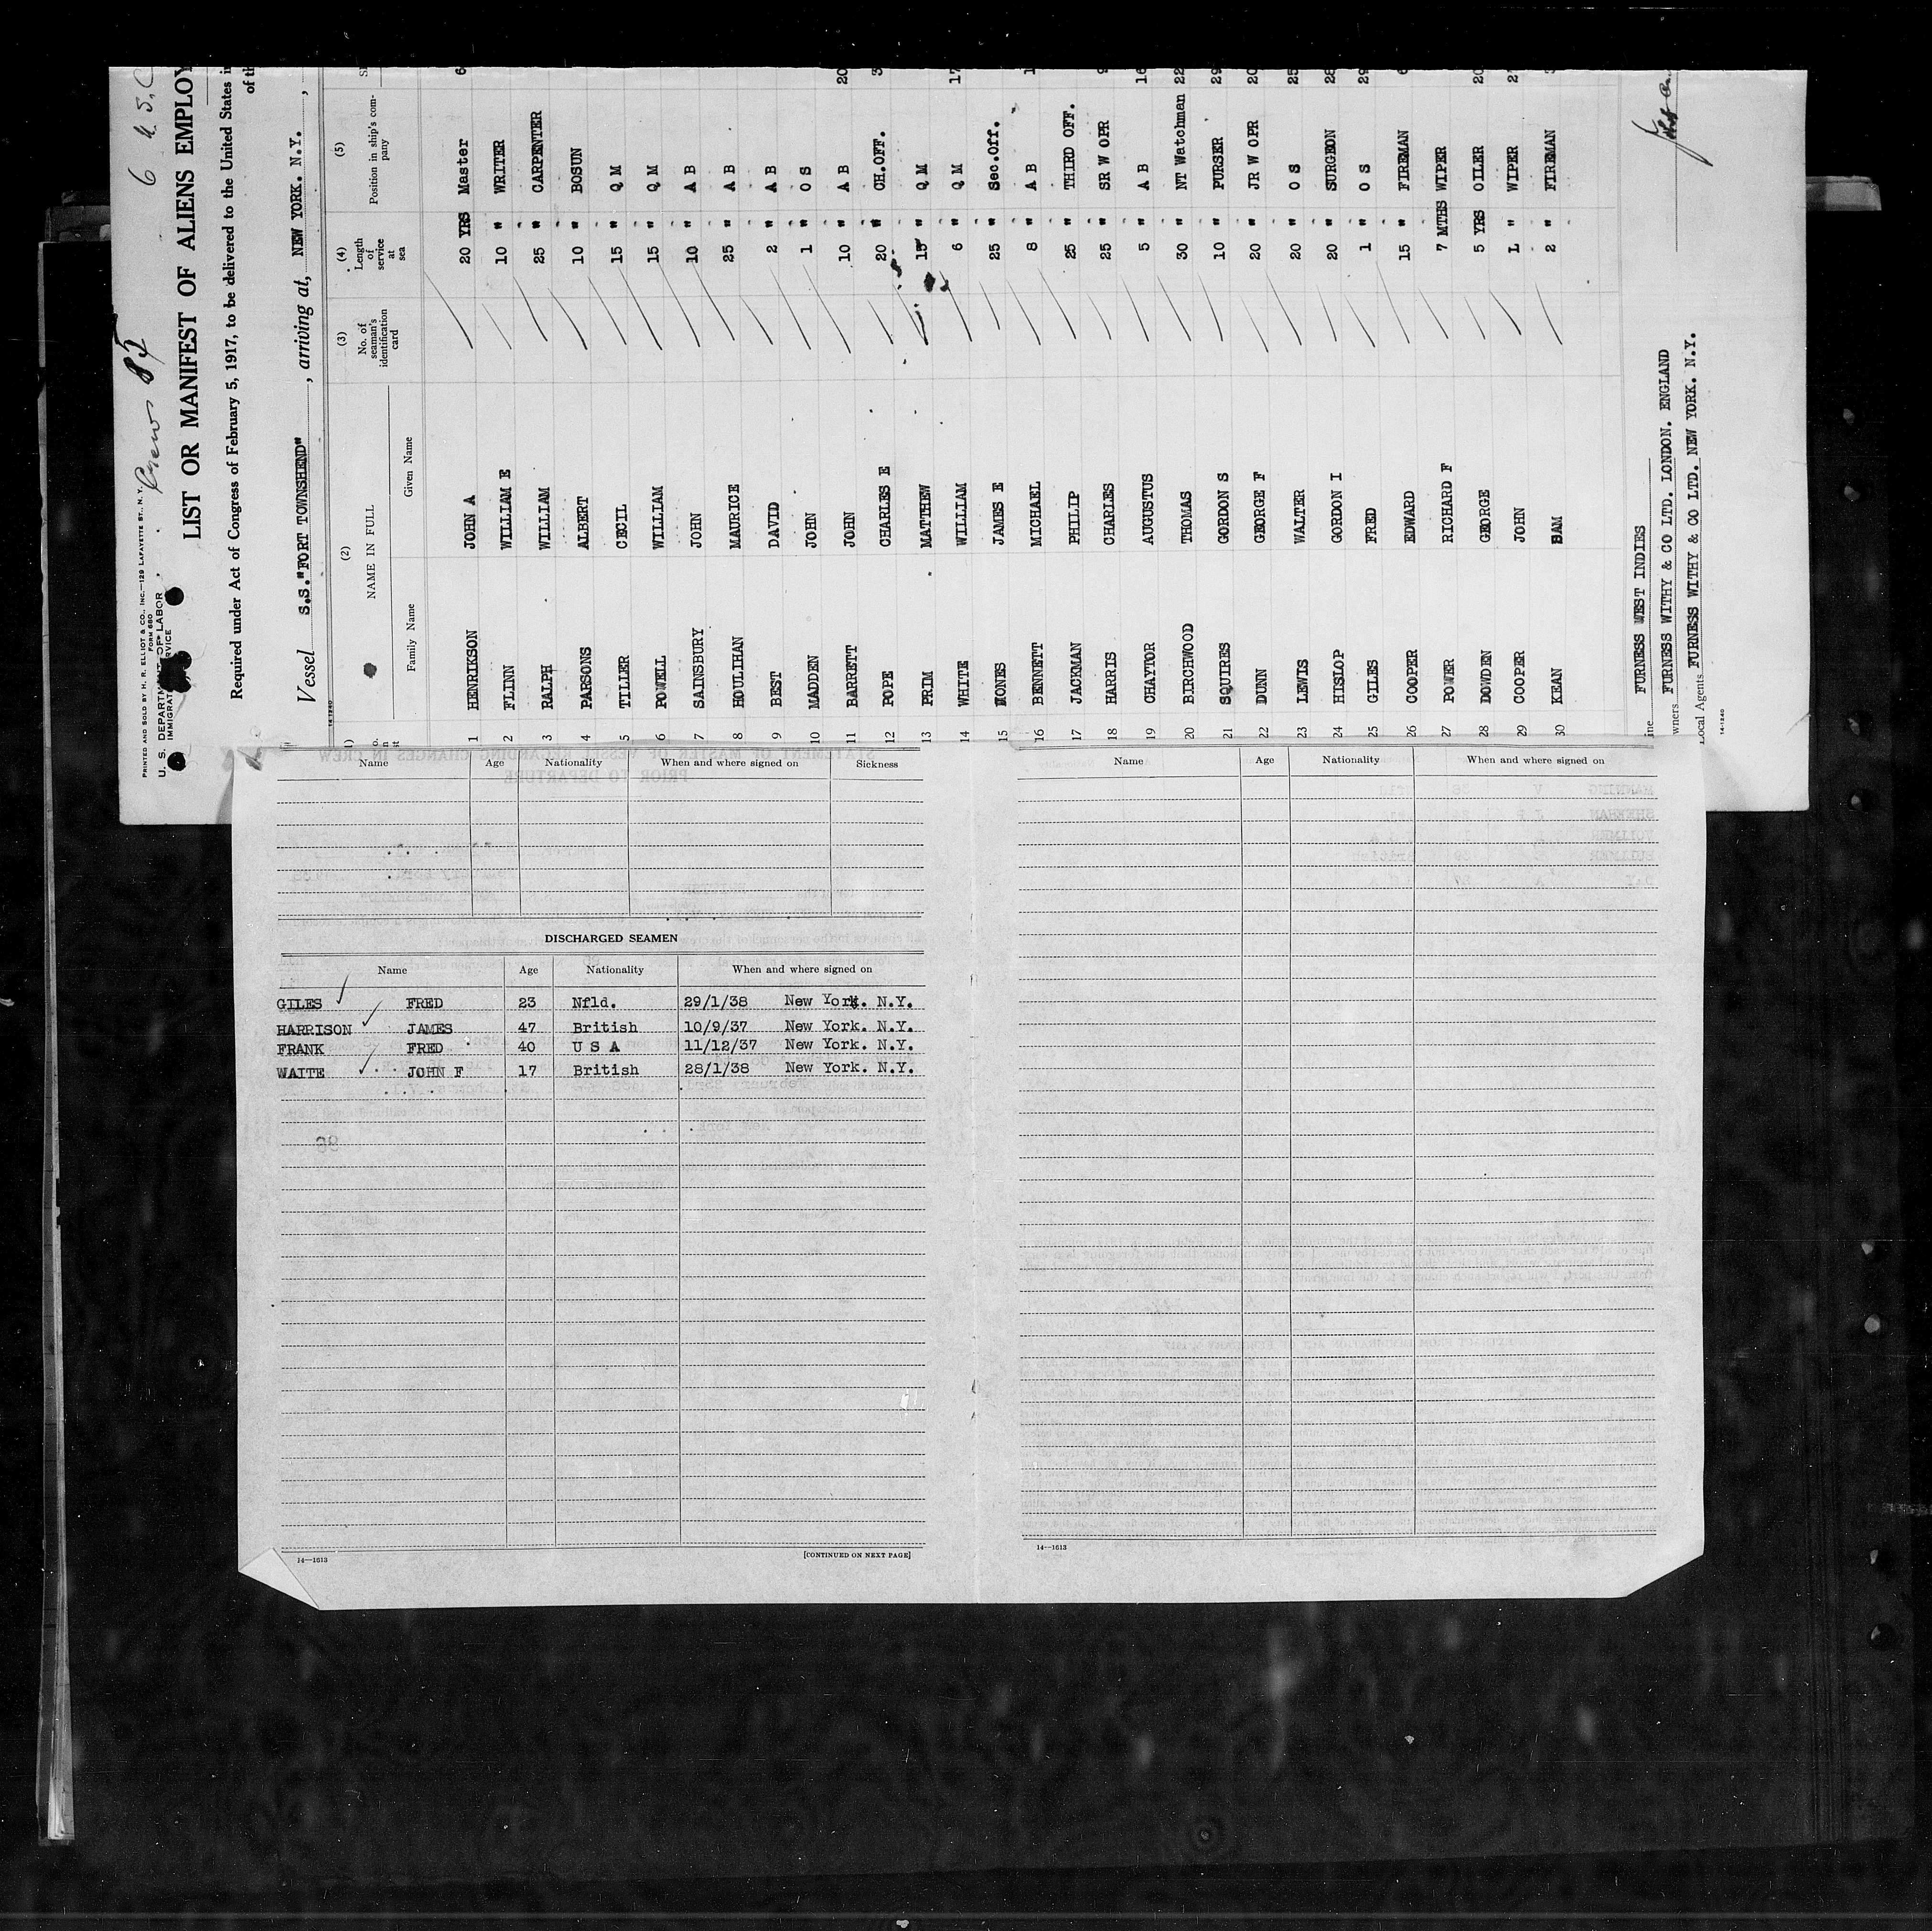 PRINTED AND SOLD BY H. R. ELLIOT & CO., INC.—129 LAFAYETTE ST., N. Y.
FORM 680
U. S. DEPARTMENT OF LABOR
IMMIGRATION SERVICE
Crew 85
6 U.S.C
LIST OR MANIFEST OF ALIENS EMPLOY
Required under Act of Congress of February 5, 1917, to be delivered to the United States i
of th
Vessel S.S."FORT TOWNSHEND", arriving at, NEW YORK. N.Y.,
14-1240
(2) (3) (4) (5)
NAME IN FULL No. of seaman's identification card Length of service at sea Position in ship's company
Family Name Given Name
1 HENRIKSON JOHN A 20 YRS Master 6
2 FLINN WILLIAM E 10 " WRITER
3 RALPH WILLIAM 25 " CARPENTER
4 PARSONS ALBERT 10 " BOSUN
5 TILLER CECIL 15 " Q M
6 POWELL WILLIAM 15 " Q M
7 SAINSBURY JOHN 10 " A B
8 HOULIHAN MAURICE 25 " A B
9 BEST DAVID 2 " A B
10 MADDEN JOHN 1 " O S
11 BARRETT JOHN 10 " A B 20
12 POPE CHARLES E 20 " CH.OFF. 3
13 PRIM MATTHEW 15 " Q M
14 WHITE WILLIAM 6 " Q M 17
15 JAMES E 25 " Sec.Off.
16 BENNETT MICHAEL 8 " A B 1
17 JACKMAN PHILIP 25 " THIRD OFF.
18 HARRIS CHARLES 25 " SR W OPR 9
19 CHAYTOR AUGUSTUS 5 " A B 16
20 BIRCHWOOD THOMAS 30 " NT Watchman 22
21 SQUIRES GORDON S 10 " PURSER 29
22 DUNN GEORGE F 20 " JR W OPR 20
23 LEWIS WALTER 20 " O S 25
24 HISLOP GORDON I 20 " SURGEON 28
25 GILES FRED 1 " O S 29
26 COOPER EDWARD 15 " FIREMAN 6
27 POWER RICHARD F 7 MTHS WIPER
28 DOWDEN GEORGE 5 YRS OILER 20
29 COOPER JOHN 1 " WIPER 21
30 KEAN SAM 2 " FIREMAN 3
ine FURNESS WEST INDIES
wners FURNESS WITHY & CO LTD. LONDON. ENGLAND
Local Agents FURNESS WITHY & CO LTD. NEW YORK. N.Y.
14-1240
Name Age Nationality When and where signed on Sickness
DISCHARGED SEAMEN
Name Age Nationality When and where signed on
GILES FRED 23 Nfld. 29/1/38 New York. N.Y.
HARRISON JAMES 47 British 10/9/37 New York. N.Y.
FRANK FRED 40 U S A 11/12/37 New York. N.Y.
WAITE JOHN F 17 British 28/1/38 New York. N.Y.
14—1613 [CONTINUED ON NEXT PAGE]
Name Age Nationality When and where signed on
14—1613